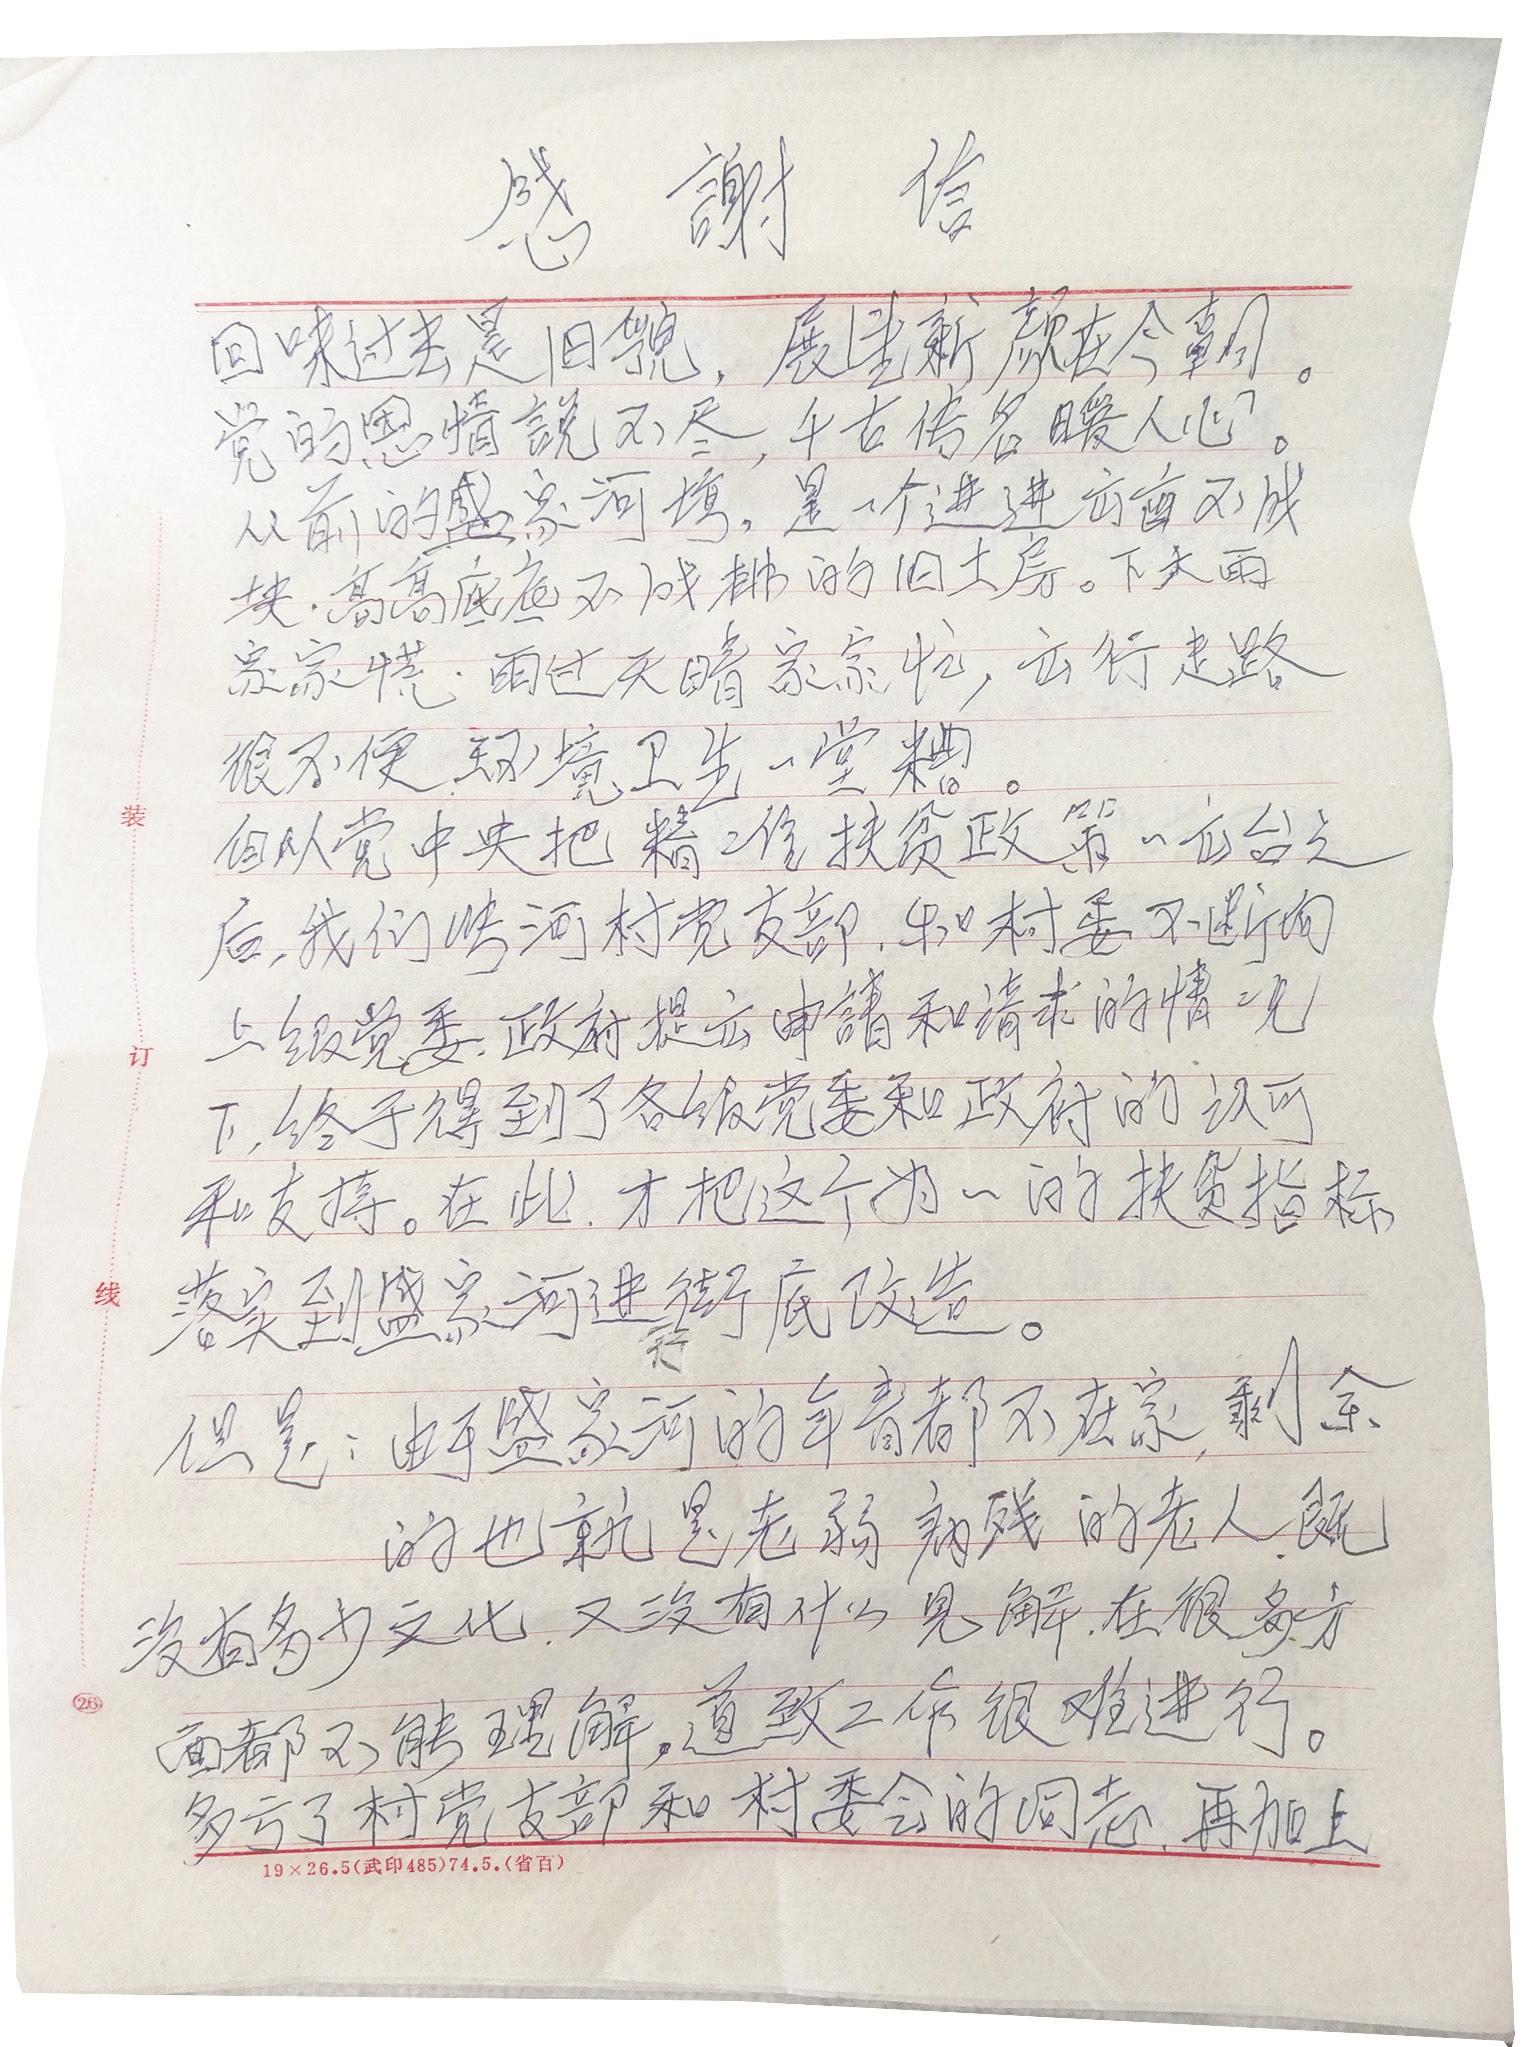 感謝信
回味过去是旧貌，展望新颜在今朝。
党的恩情説不尽，千古传名暖人心。
从前的盛家河塆，是一个进进出出不成
块．高高底底不成排的旧土房。下大雨
家家慌．雨过天晴家家忙，出行走路
很不便．环境卫生一堂糟。
但从党中央把精准扶贫政策一出台之
后，我们 河村党支部．和村委不断向
上级党委．政府提出申請和请求的情况
下，终于得到了各级党委和政府的认可
和支持。在此．才把这个为一的扶贫指标
落实到盛家河进街底改造。
行
但是：由于盛家河的年青都不在家，剩余
的也就是老弱病残的老人．既
没有多少文化．又没有什么见解．在很多方
面都不能理解，道致工作很难进行。
多亏了村党支部和村委会的同志．再加上
装
订
线
26
19×26.5(武印485)74.5.(省百)